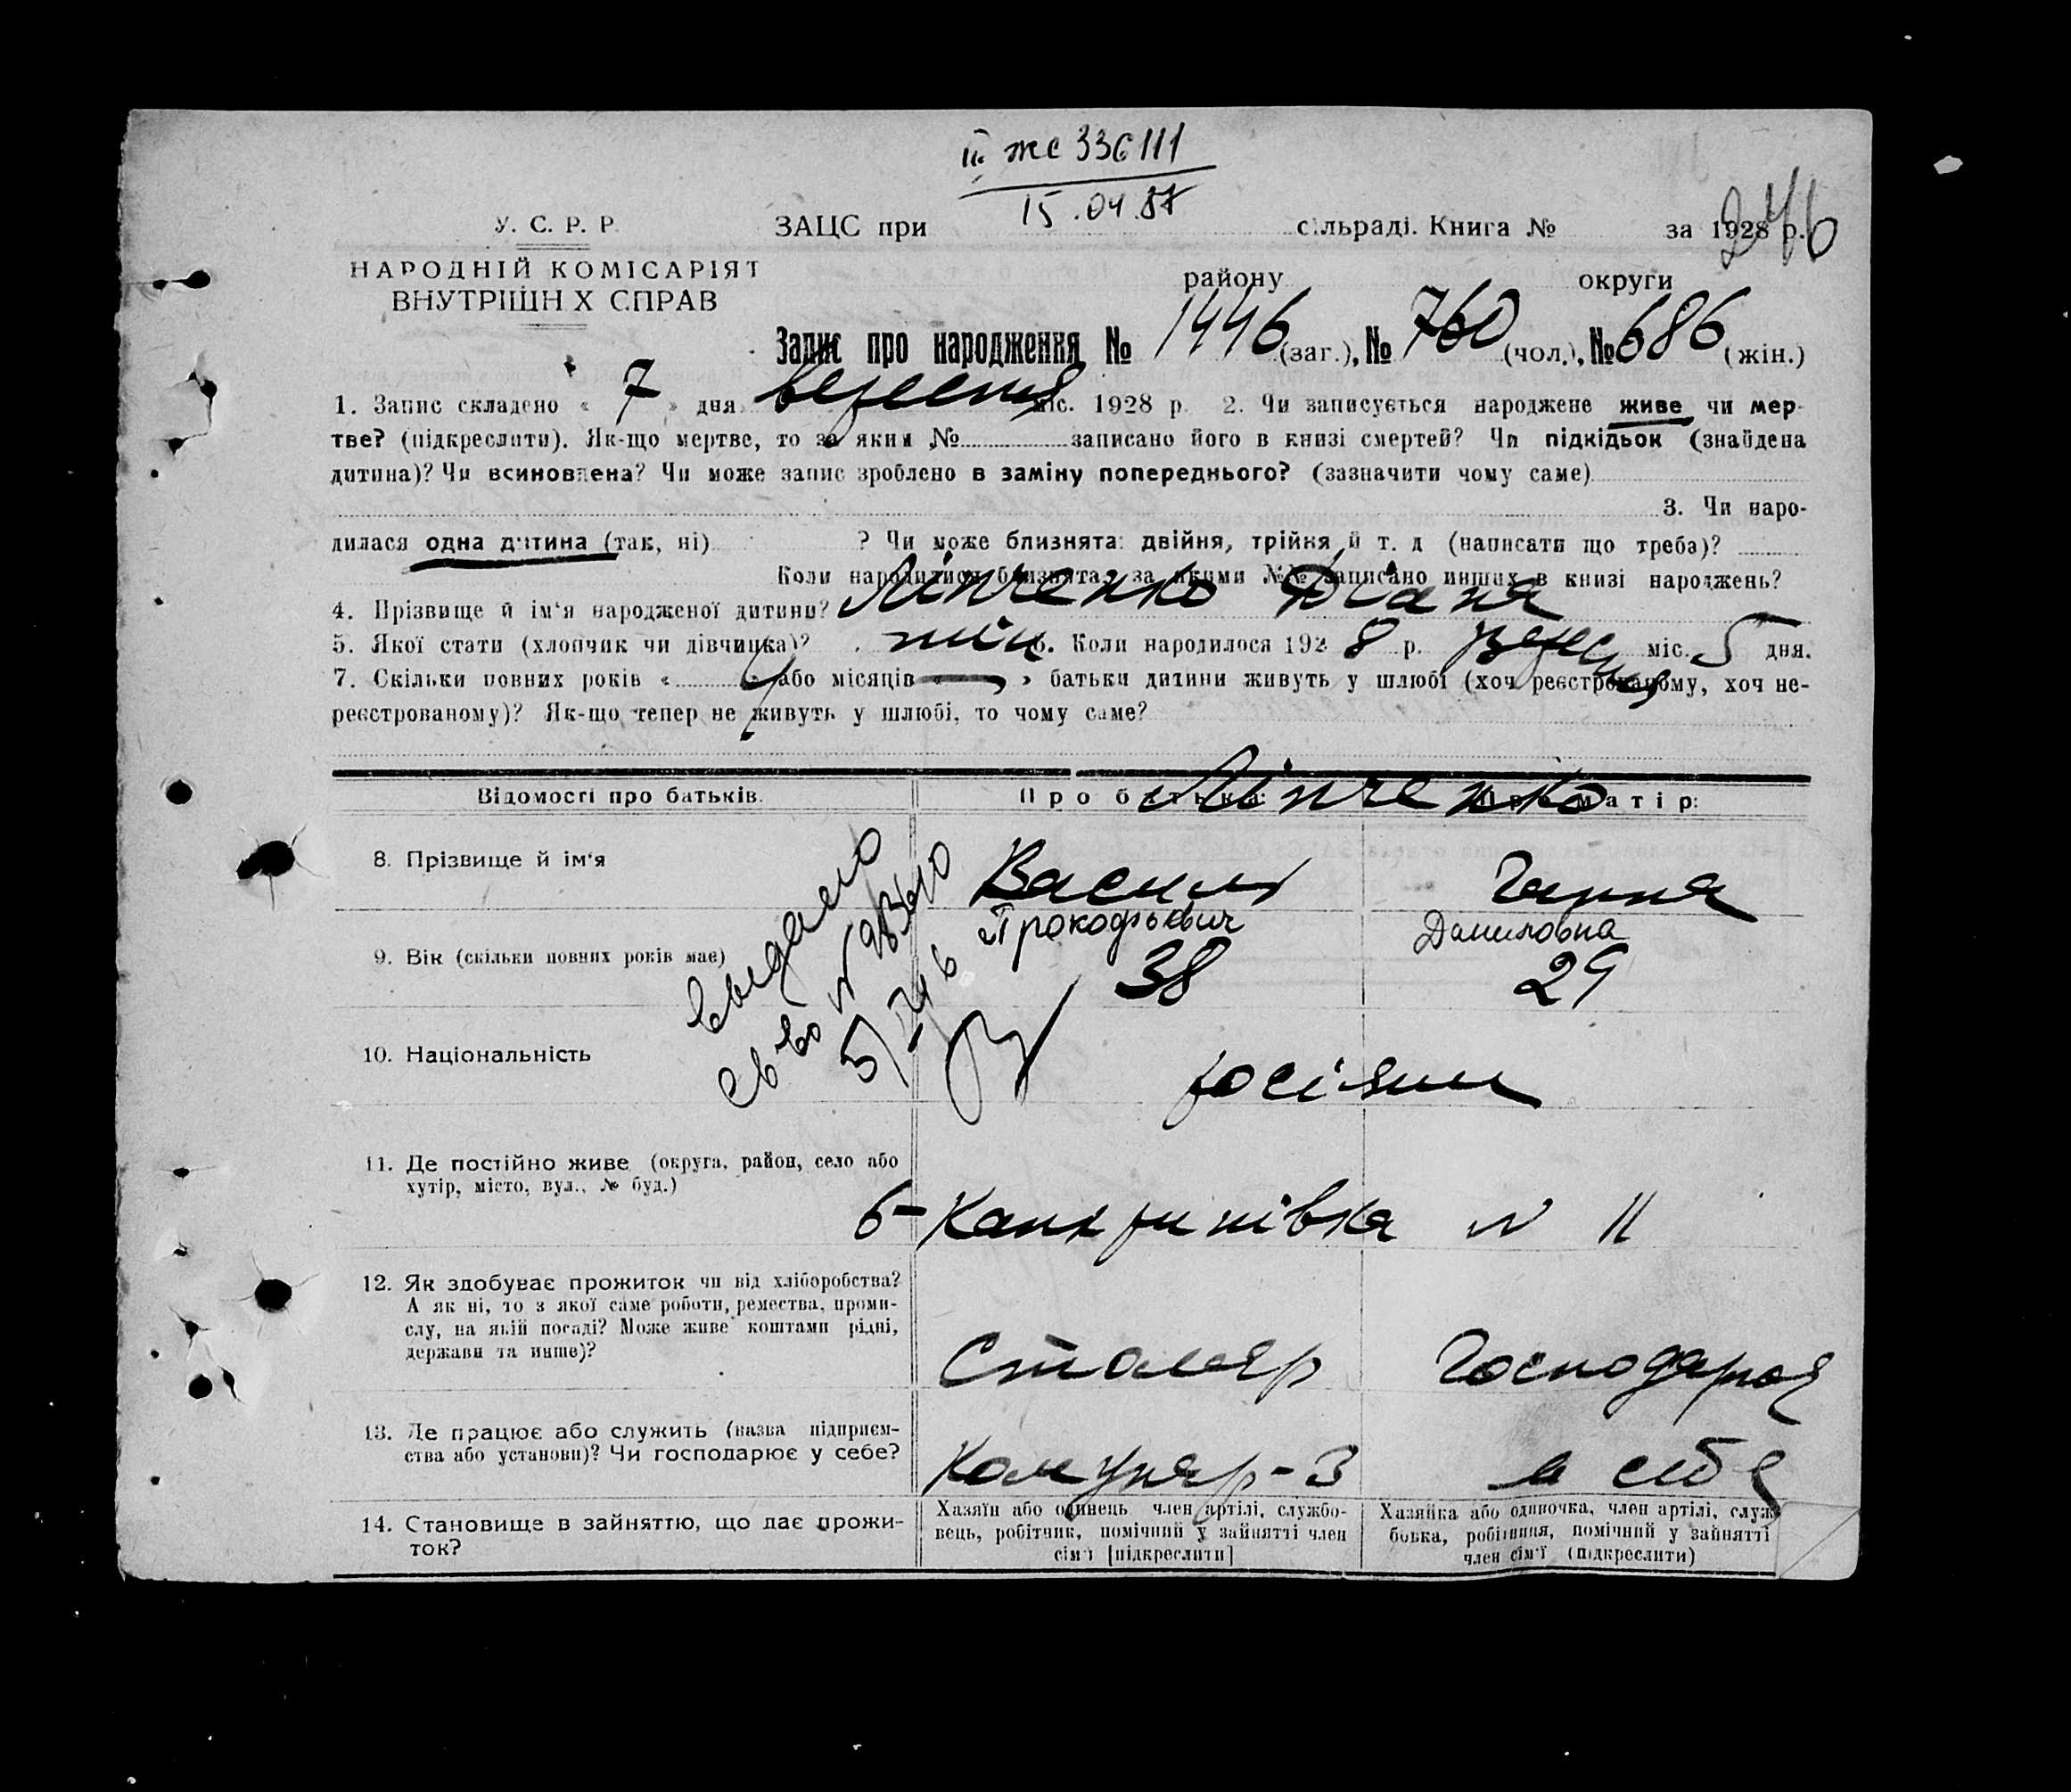 ІІ жс 336111
15.04.87
246
У. С. Р. Р.
НАРОДНІЙ КОМІСАРІЯТ
ВНУТРІШН Х СПРАВ
ЗАЦС при сільраді. Книга № за 1928 р.
району округи
Запис про народження № 1446 (заг.), № 760 (чол.), № 686 (жін.)
1. Запис складено « 7 » дня вересня міс. 1928 р. 2. Чи записується народжене живе чи мер-
тве? (підкреслити). Як-що мертве, то за яким № записано його в книзі смертей? Чи підкідьок (знайдена
дитина)? Чи всиновлена? Чи може запис зроблено в заміну попереднього? (зазначити чому саме)
3. Чи наро-
дилася одна дитина (так, ні) ? Чи може близнята: двійня, трійня й т. д (написати що треба)?
Коли народилися близнята, за якими №№ записано инших в книзі народжень?
4. Прізвище й ім'я народженої дитини? Лінченко
5. Якої стати (хлопчик чи дівчинка)? жін 6. Коли народилося 1928 р. вересня міс. 5 дня.
7. Скільки повних років « » або місяців « — » батьки дитини живуть у шлюбі (хоч реєстрованому, хоч не-
реєстрованому)? Як-що тепер не живуть у шлюбі, то чому саме?
Відомості про батьків. Про батька: Про матір:
Лінченко
8. Прізвище й ім'я Василь Ганна
Прокофьевич Даниловна
9. Вік (скільки повних років має) 38 29
выдано
св во №
10. Національність росіяни
11. Де постійно живе (округа, район, село або
хутір, місто, вул., № буд.)
№ 11
12. Як здобуває прожиток чи від хліборобства?
А як ні, то з якої саме роботи, ремества, проми-
слу, на якій посаді? Може живе коштами рідні,
держави та инше)?
Столяр Господарює
13. Де працює або служить (назва підприєм-
ства або установи)? Чи господарює у себе?
Комунар-З в себе
14. Становище в зайняттю, що дає прожи-
ток?
Хазяїн або одинець член артілі, службо-
вець, робітник, помічний у зайнятті член
сім'ї [підкреслити]
Хазяйка або одиночка, член артілі, служ
бовка, робітниця, помічний у зайнятті
член сім'ї (підкреслити)